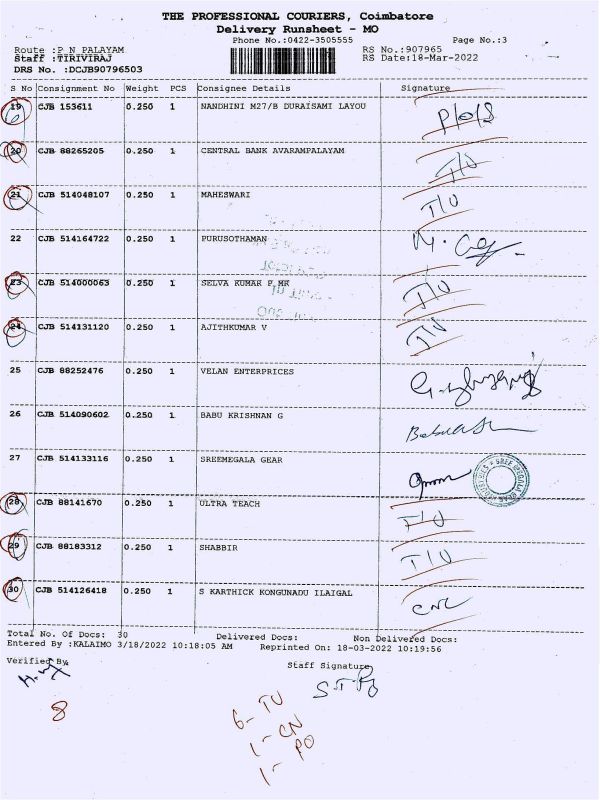 THE PROFESSIONAL COURIERS, Coimbatore
Delivery Runsheet - MO
Phone No.:0422-3505555 Page No.:3
Route :P N PALAYAM RS No.:907965
Staff :TIRIVIRAJ RS Date:18-Mar-2022
DRS No. :DCJB90796503
S No Consignment No Weight PCS Consignee Details Signature
19 CJB 153611 0.250 1 NANDHINI M27/B DURAISAMI LAYOU P/O/S
20 CJB 88265205 0.250 1 CENTRAL BANK AVARAMPALAYAM T/U
21 CJB 514048107 0.250 1 MAHESWARI T/U
22 CJB 514164722 0.250 1 PURUSOTHAMAN
23 CJB 514000063 0.250 1 SELVA KUMAR P MK T/U
24 CJB 514131120 0.250 1 AJITHKUMAR V T/U
25 CJB 88252476 0.250 1 VELAN ENTERPRICES
26 CJB 514090602 0.250 1 BABU KRISHNAN G
27 CJB 514133116 0.250 1 SREEMEGALA GEAR
28 CJB 88141670 0.250 1 ULTRA TEACH T/U
29 CJB 88183312 0.250 1 SHABBIR T/U
30 CJB 514126418 0.250 1 S KARTHICK KONGUNADU ILAIGAL CNL
Total No. Of Docs: 30 Delivered Docs: Non Delivered Docs:
Entered By :KALAIMO 3/18/2022 10:18:05 AM Reprinted On: 18-03-2022 10:19:56
Verified By Staff Signature
8
6- TU
1- CN
1- PO